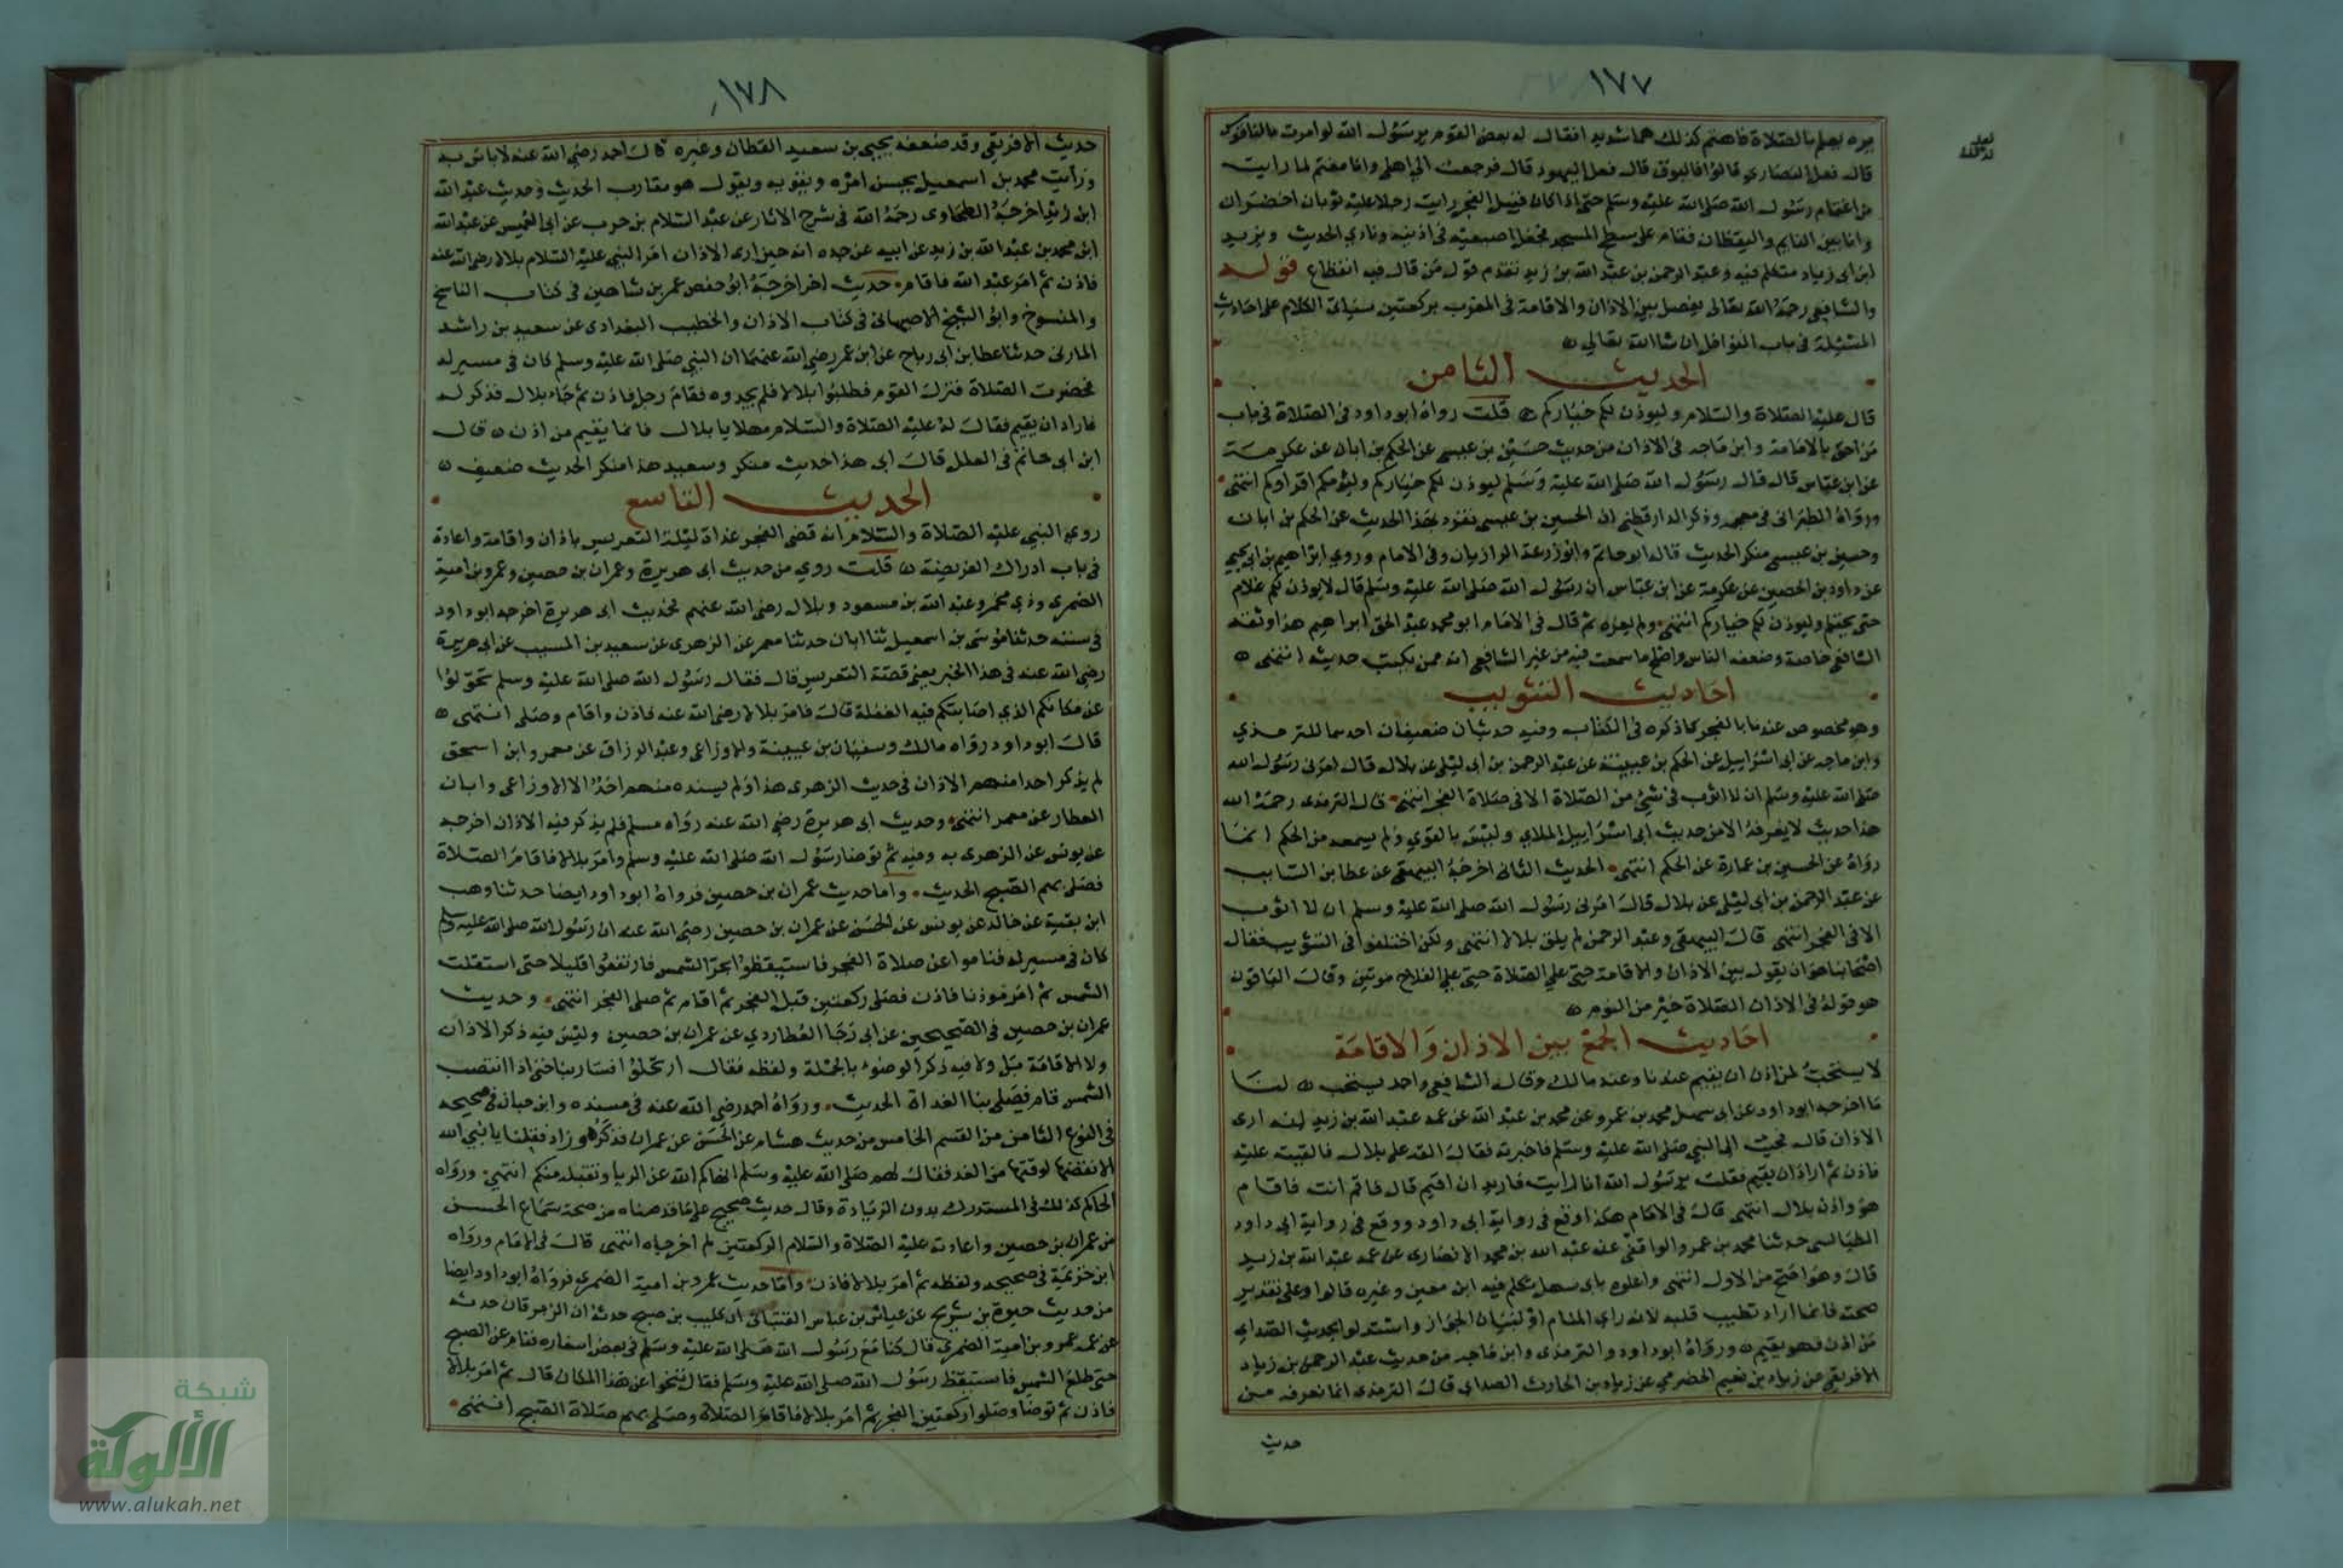 ١٧٧
مره يعلم بالصلاة فاهتم كذلك هما شديدا فقال له بعض القوم يرسول الله لو امرت بالناقوس
قال فعل النصارى قالوا فالبوق قال فعل اليهود قال فرجعت الي اهلي وانا مغتم لما رايت
من اغتمام رسول الله صلى الله عليه وسلم حتى اذا كان قبيل الفجر رايت رجلا عليه ثوبان اخضران
وانا بين النايم واليقظان فقام على سطح المسجد فجعل اصبعيه في اذنيه ونادي الحديث ويزيد
ابن ابى زياد متكلم فيه وعبد الرحمن بن عبد الله بن زيد تقدم قول من قال فيه انقطاع قوله
والشافعي رحمه الله تعالى يفصل بين الاذان والاقامة في المغرب بركعتين سياتى الكلام على احاديث
المسئلة في باب النوافل ان شا الله تعالي
الحديث الثامن
قال عليه الصلاة والسلام وليوذن لكم خياركم قلت رواه ابو داود في الصلاة في باب
من احق بالامامة وابن ماجه في الاذان من حديث حسين بن عيسى عن الحكم بن ابان عن عكرمة
عن ابن عباس قال قال رسول الله صلى الله عليه وسلم ليوذن لكم خياركم وليؤمكم اقراوكم انتهى
ورواه الطبراني في معجمه وذكر الدارقطني ان الحسين بن عيسى تفرد بهذا الحديث عن الحكم بن ابان
وحسين بن عيسى منكر الحديث قاله ابو حاتم وابو زرعة الرازيان وفي الامام وروي ابراهيم بن ابي يحيي
عن داود بن الحصين عن عكرمة عن ابن عباس ان رسول الله صلى الله عليه وسلم قال لا يوذن لكم غلام
حتى يحتلم وليوذن لكم خياركم انتهى ولم يعزه ثم قال في الامام ابو محمد عبد الحق ابراهيم هذا وثقه
الشافعي خاصة وضعفه الناس واصلح ما سمعت فيه من غير الشافعي انه ممن يكتب حديثه انتهى
احاديث التثويب
وهو مخصوص عندنا بالفجر كما ذكره في الكتاب وفيه حديثان ضعيفان احدهما للترمذي
وابن ماجه عن ابى اسرايل عن الحكم بن عيينة عن عبد الرحمن بن ابى ليلى عن بلال قال امرنى رسول الله
صلى الله عليه وسلم ان لا اثوب في شئ من الصلاة الا في صلاة الفجر انتهى قال الترمذى رحمه الله
هذا حديث لا يعرفه الا من حديث ابى اسرايل الملاي وليس بالقوي ولم يسمعه من الحكم انما
رواه عن الحسن بن عمارة عن الحكم انتهى الحديث الثانى اخرجه البيهقى عن عطا بن السايب
عن عبد الرحمن بن ابى ليلى عن بلال قال امرنى رسول الله صلى الله عليه وسلم ان لا اثوب
الا في الفجر انتهى قال البيهقى وعبد الرحمن لم يلق بلالا انتهى ولكن اختلفوا في التثويب فقال
اصحابنا هو ان يقول بين الاذان والاقامة حي علي الصلاة حي علي الفلاح مرتين وقال الباقون
هو قوله في الاذان الصلاة خير من النوم
احاديث الجمع بين الاذان والاقامة
لا يستحب لمن اذن ان يقيم عندنا وعند مالك وقال الشافعي واحمد يستحب لنا
ما اخرجه ابو داود عن ابى سهل محمد بن عمرو عن محمد بن عبد الله عن عمه عبد الله بن زيد انه ارى
الاذان قال فجيت الى النبي صلى الله عليه وسلم فاخبرته فقال القه على بلال فالقيته عليه
فاذن ثم اراد ان يقيم فقلت يرسول الله انا رايت فاريد ان اقيم قال فاقم انت فاقام
هو واذن بلال انتهى قال في الامام هكذا وقع في رواية ابى داود ووقع في رواية ابي داود
الطيالسى حدثنا محمد بن عمرو الواقفي عنه عبد الله بن محمد الانصارى عن عمه عبد الله بن زيد
قال وهو اصح من الاول انتهى واعلوه بابى سهل تكلم فيه ابن معين وغيره قالوا وعلى تقدير
صحته فانما اراد تطييب قلبه لانه راي المنام او لبيان الجواز واستدلوا بحديث الصداي
من اذن فهو يقيم ورواه ابو داود والترمذى وابن ماجه من حديث عبد الرحمن بن زياد
الافريقى عن زياد بن نعيم الحضرمي عن زياد بن الحارث الصداي قال الترمذى انما نعرفه من
حديث
١٧٨
حديث الافريقى وقد ضعفه يحيى بن سعيد القطان وغيره قال احمد رضي الله عنه لا باس به
ورايت محمد بن اسمعيل يحسن امره ويقويه ويقول هو مقارب الحديث وحديث عبد الله
ابن زيد اخرجه الطحاوى رحمه الله في شرح الاثار عن عبد السلام بن حرب عن ابى العميس عن عبد الله
ابن محمد بن عبد الله بن زيد عن ابيه عن جده انه حين ارى الاذان امر النبي عليه السلام بلالا رضى الله عنه
فاذن ثم امر عبد الله فاقام حديث اخر اخرجه ابو حفص عمر بن شاهين في كتاب الناسخ
والمنسوخ وابو الشيخ الاصبهانى في كتاب الاذان والخطيب البغدادى عن سعيد بن راشد
المازنى حدثنا عطا بن ابى رباح عن ابن عمر رضي الله عنهما ان النبي صلى الله عليه وسلم كان في مسير له
فحضرت الصلاة فنزل القوم فطلبوا بلالا فلم يجدوه فقام رجل فاذن ثم جاء بلال فذكر له
فاراد ان يقيم فقال له عليه الصلاة والسلام مهلا يا بلال فانما يقيم من اذن قال
ابن ابى حاتم في العلل قال ابى هذا حديث منكر وسعيد هذا منكر الحديث ضعيف
الحديث التاسع
روي النبي عليه الصلاة والسلام انه قضى الفجر غداة ليلة التعريس باذان واقامة واعاده
في باب ادراك الفريضة قلت روي من حديث ابى هريرة وعمران بن حصين وعمرو بن امية
الضمرى وذي مخبر وعبد الله بن مسعود وبلال رضى الله عنهم فحديث ابى هريرة اخرجه ابو داود
في سننه حدثنا موسى بن اسمعيل ثنا ابان حدثنا معمر عن الزهرى عن سعيد بن المسيب عن ابى هريرة
رضي الله عنه في هذا الخبر يعنى قصة التعريس قال فقال رسول الله صلى الله عليه وسلم تحولوا
عن مكانكم الذي اصابتكم فيه الغفلة قال فامر بلالا رضى الله عنه فاذن واقام وصلى انتهى
قال ابو داود رواه مالك وسفيان بن عيينة والاوزاعى وعبد الرزاق عن معمر وابن اسحق
لم يذكر احد منهم الاذان في حديث الزهرى هذا ولم يسنده منهم احد الا الاوزاعى وابان
العطار عن معمر انتهى وحديث ابى هريرة رضى الله عنه رواه مسلم فلم يذكر فيه الاذان اخرجه
عن يونس عن الزهرى به وفيه ثم توضا رسول الله صلى الله عليه وسلم وامر بلالا فاقام الصلاة
فصلى بهم الصبح الحديث واما حديث عمران بن حصين فرواه ابو داود ايضا حدثنا وهب
ابن بقية عن خالد عن يونس عن الحسن عن عمران بن حصين رضي الله عنه ان رسول الله صلى الله عليه وسلم
كان في مسير له فناموا عن صلاة الفجر فاستيقظوا بحر الشمس فارتفعوا قليلا حتى استقلت
الشمس ثم امر موذنا فاذن فصلى ركعتين قبل الفجر ثم اقام ثم صلى الفجر انتهى وحديث
عمران بن حصين في الصحيحين عن ابى رجا العطاردي عن عمران بن حصين وليس فيه ذكر الاذان
ولا الاقامة بل ولا فيه ذكر الوضوء بالجملة ولفظه فقال ارتحلوا فسار بنا حتى اذا انتصب
الشمس قام فصلى بنا الغداة الحديث ورواه احمد رضى الله عنه في مسنده وابن حبان في صحيحه
في النوع الثامن من القسم الخامس من حديث هشام عن الحسن عن عمران فذكره وزاد فقلنا يا نبي الله
الا نقضها لوقتها من الغد فقال لهم صلى الله عليه وسلم انهاكم الله عن الربا ويقبله منكم انتهى ورواه
الحاكم كذلك في المستدرك بدون الزيادة وقال حديث صحيح على ما قدمناه من صحة سماع الحسن
من عمران بن حصين واعادته عليه الصلاة والسلام الركعتين لم اخرجاه انتهى قال في الامام ورواه
ابن خزيمة في صحيحه ولفظه ثم امر بلالا فاذن واما حديث عمرو بن امية الضمرى فرواه ابو داود ايضا
من حديث حيوة بن شريح عن عياش بن عباس القتبانى ان كليب بن صبح حدثه ان الزبرقان حدثه
عن عمه عمرو بن امية الضمري قال كنا مع رسول الله صلى الله عليه وسلم في بعض اسفاره فنام عن الصبح
حتى طلع الشمس فاستيقظ رسول الله صلى الله عليه وسلم فقال تنحوا عن هذا المكان قال ثم امر بلالا
فاذن ثم توضا وصلوا ركعتين الفجر ثم امر بلالا فاقام الصلاة وصلى بهم صلاة الصبح انتهى
شبكة
الألوكة
www.alukah.net